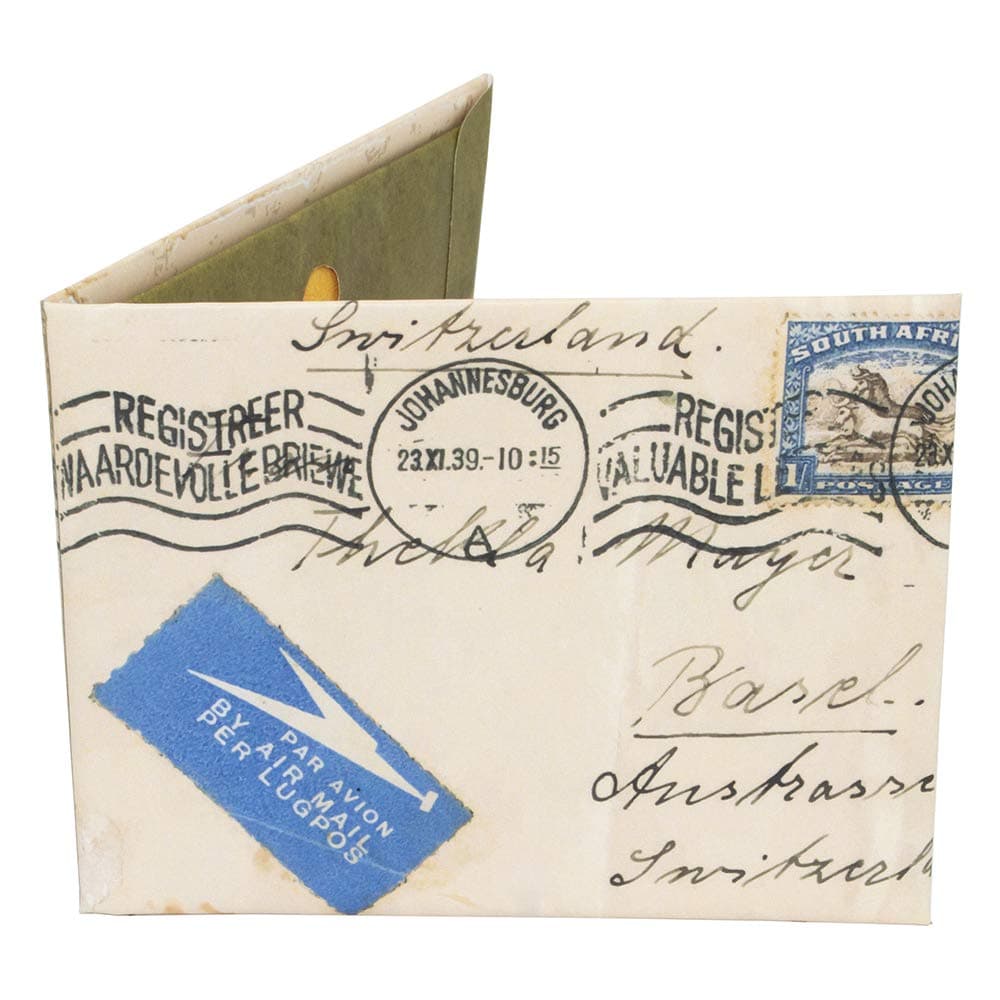 Switzerland.
REGISTREER
WAARDEVOLLE BRIEWE
JOHANNESBURG
23.XI.39.-10:15
A
REGIST
VALUABLE L
SOUTH AFRI
1/- POSTAGE
JOHA
23.X
Thekla Mayer
Basel.
Austrasse
Switzerl
PAR AVION
BY AIR MAIL
PER LUGPOS